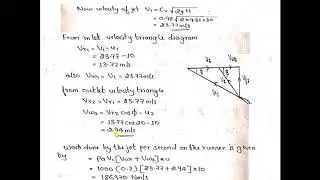 Now velocity of jet V₁ = Cv √2gH
= 0.98 √2×9.81×30
= 23.77 m/s
From inlet velocity triangle diagram
Vr₁ = V₁ - u₁
= 23.77 - 10
= 13.77 m/s
also Vw₁ = V₁ = 23.77 m/s
from outlet velocity triangle
Vr₂ = Vr₁ = 13.77 m/s
Vw₂ = Vr₂ cosϕ - u₂
= 13.77 cos20 - 10
= 2.94 m/s
Work done by the jet per second on the runner is given
by = ρaV₁ [Vw₁ + Vw₂] × u
= 1000 (0.7) [23.77 + 2.94] × 10
= 186970 Nm/s